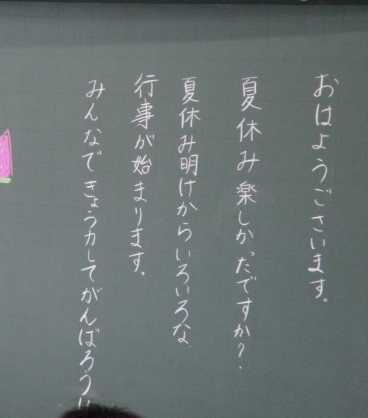 おはようございます。
夏休み楽しかったですか？
夏休み明けからいろいろな
行事が始まります。
みんなできょう力してがんばろう!!